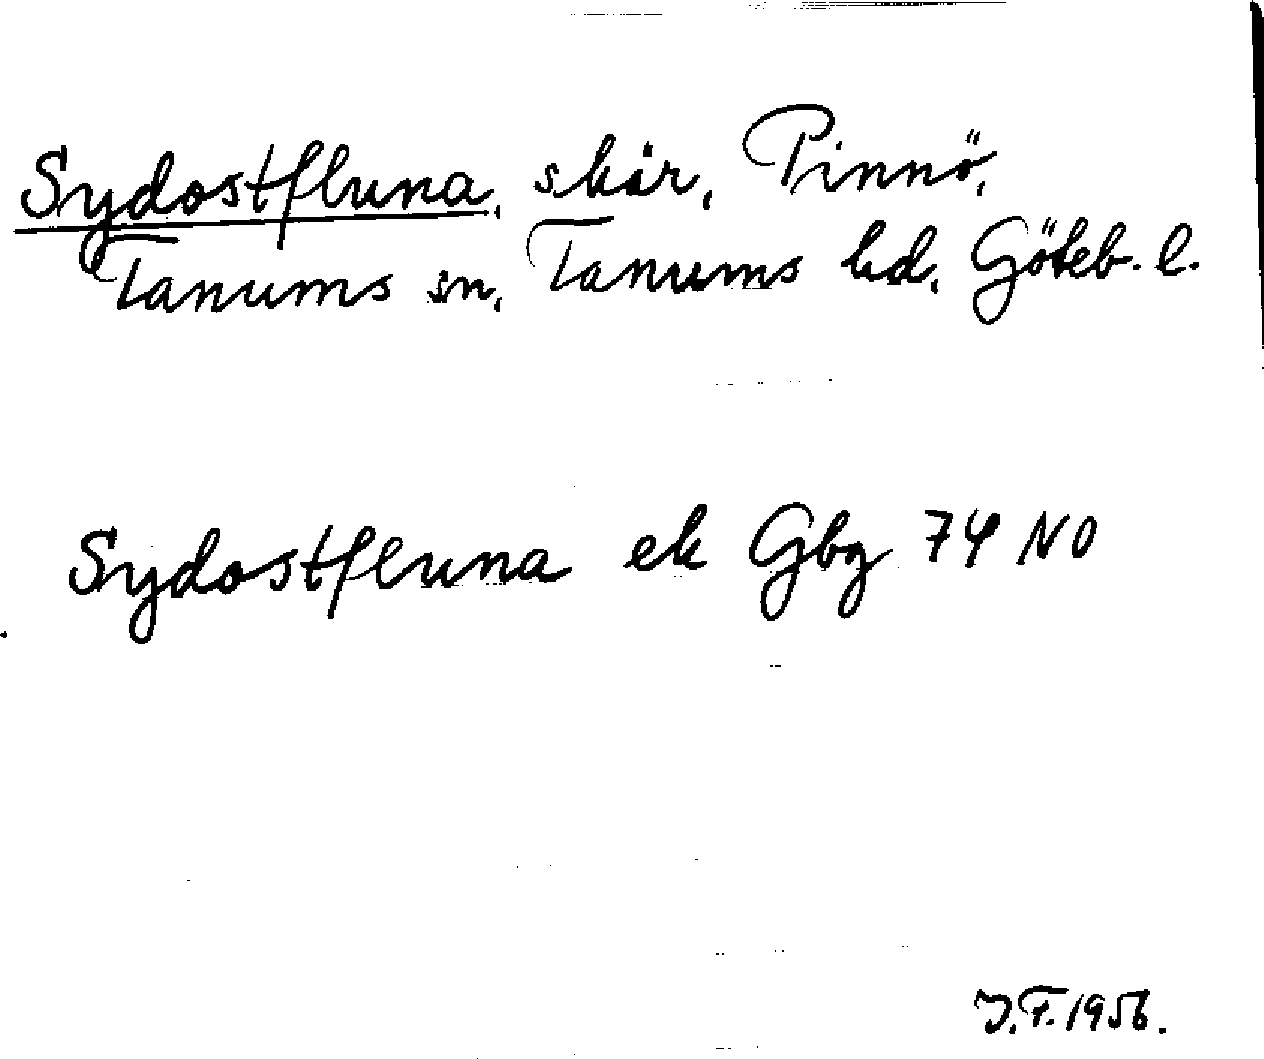 Sydostfluna, skär, Pinnö,
Tanums sn, Tanums hd, Göteb. l.
Sydostfluna ek Gbg 74 NO
J.F. 1956.